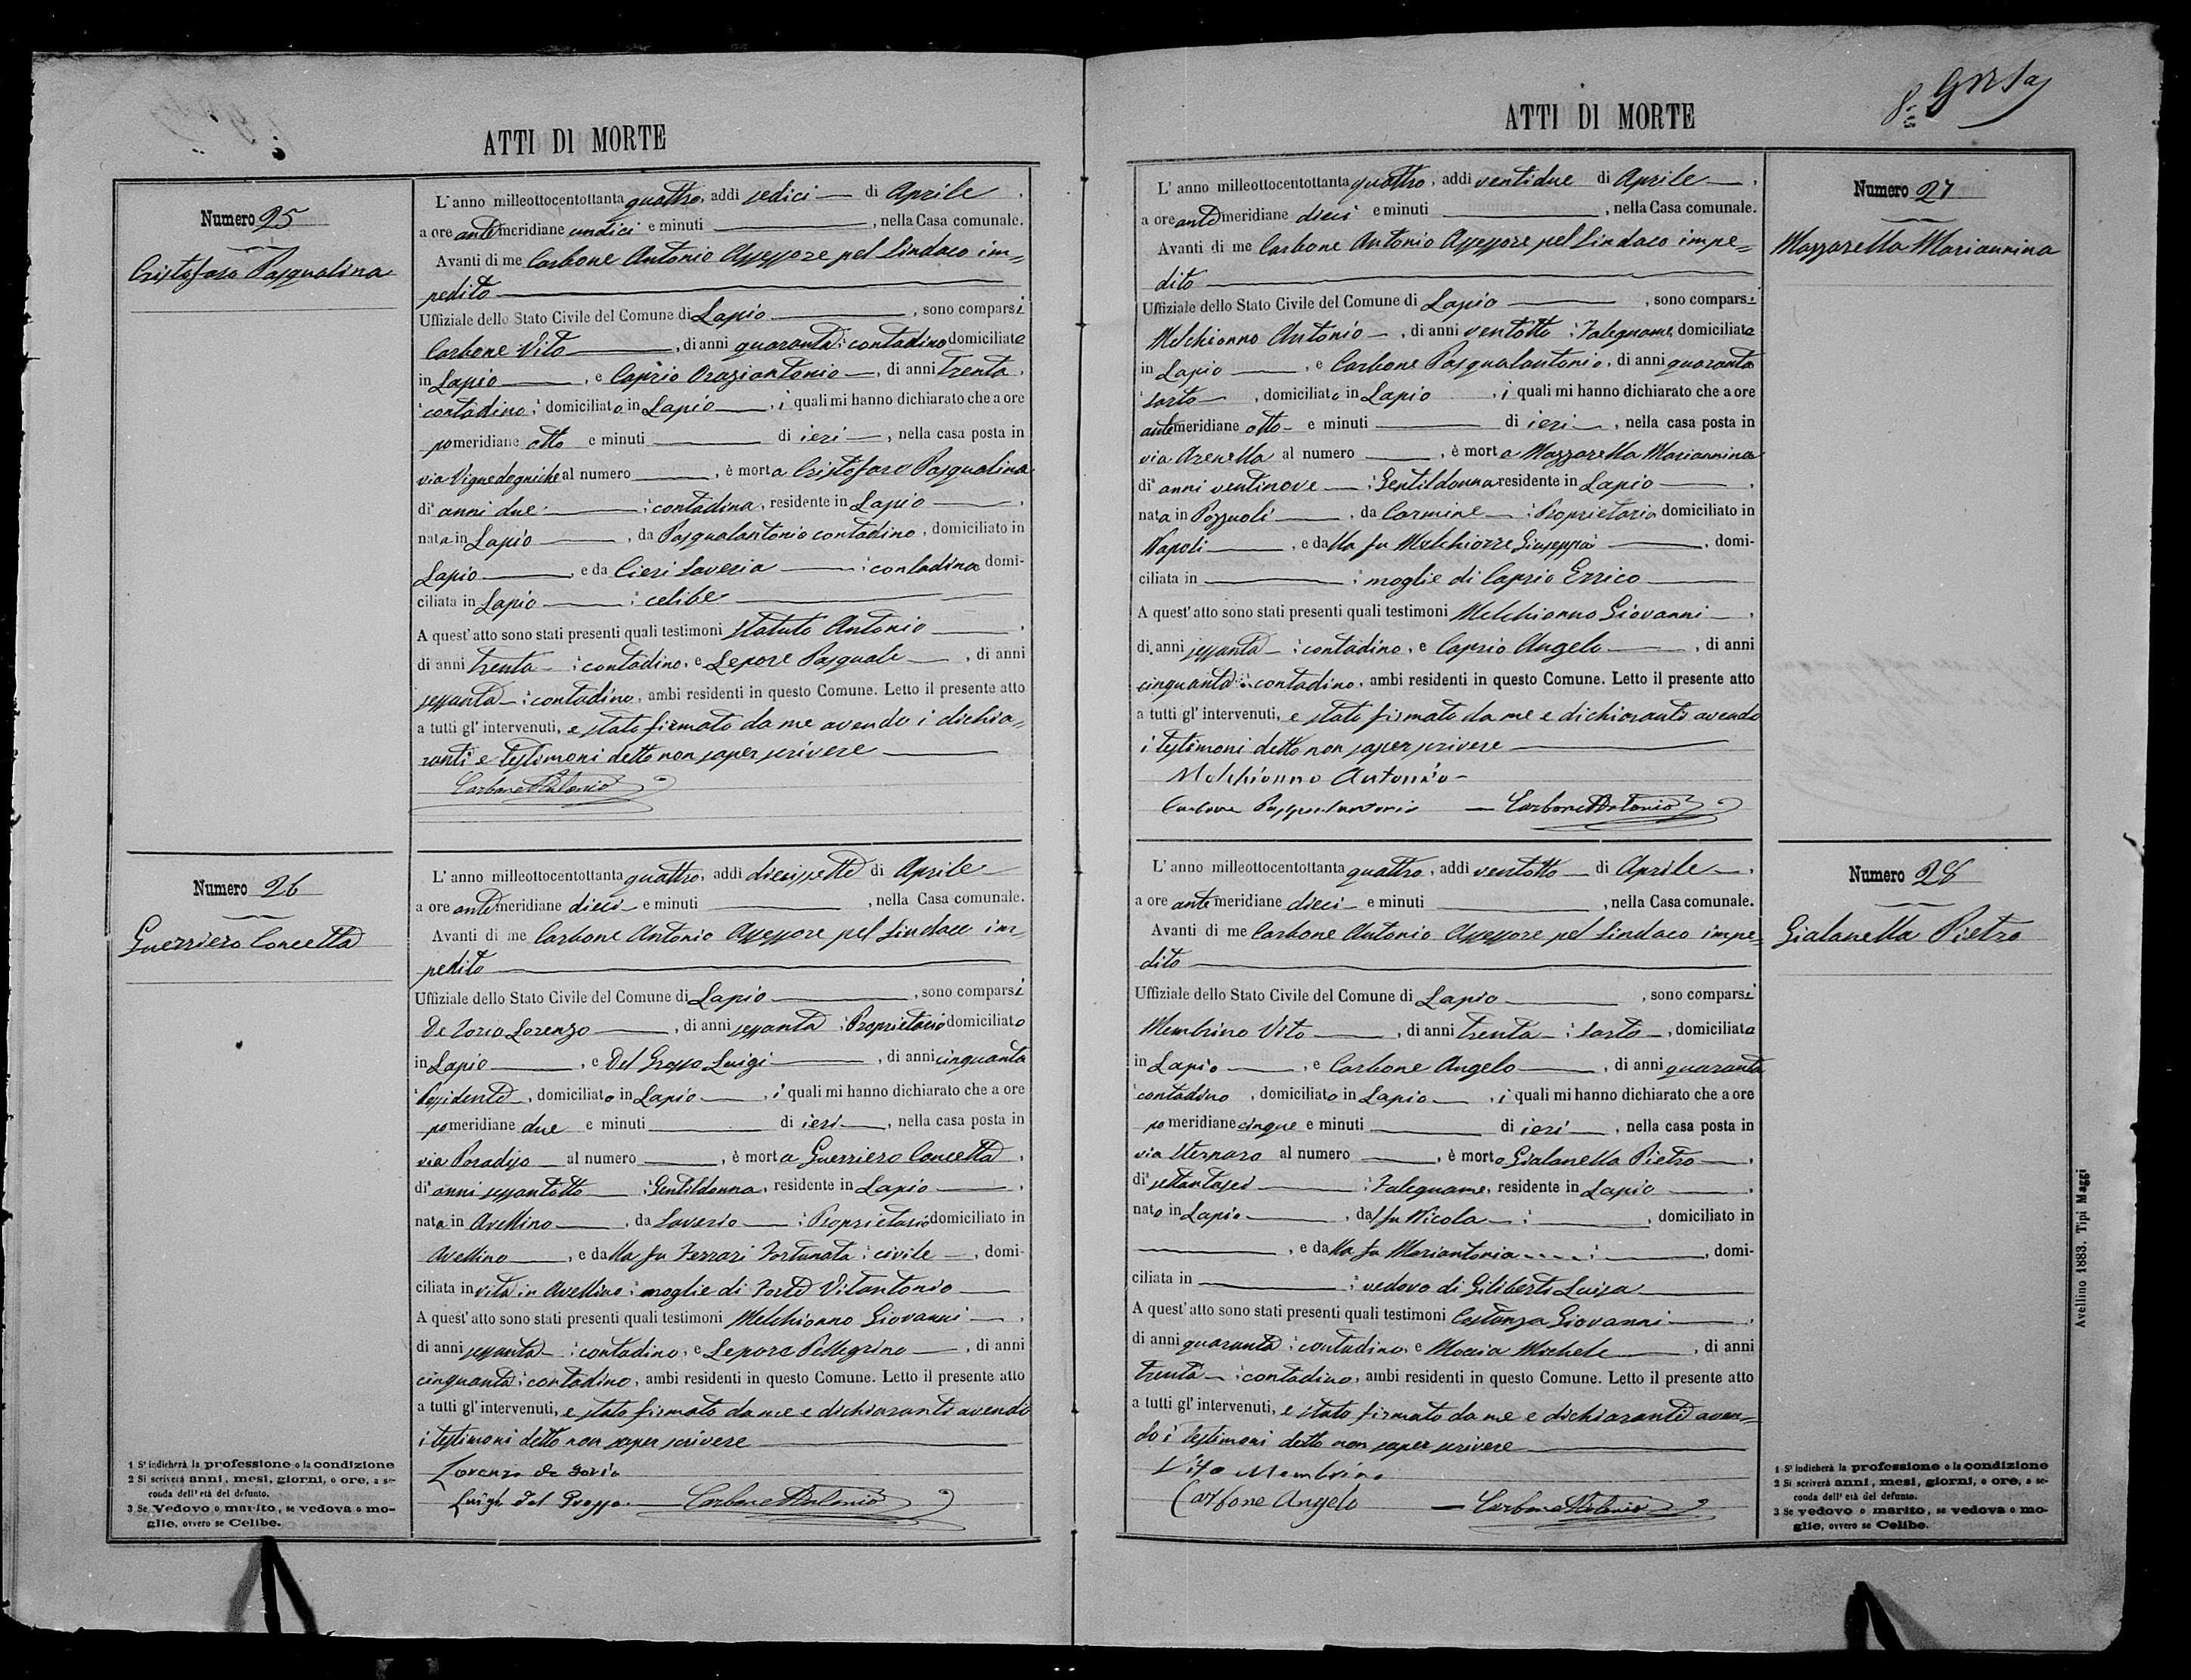 ATTI DI MORTE
Numero 25
Cristofaro Pasqualina
L'anno milleottocentottanta quattro, addi sedici di Aprile,
a ore antemeridiane undici e minuti , nella Casa comunale.
Avanti di me Carbone Antonio Assessore pel Sindaco im=
pedito
Uffiziale dello Stato Civile del Comune di Lapio , sono comparsi
Carbone Vito , di anni quaranta contadino domiciliato
in Lapio , e Caprio Oraziantonio , di anni trenta,
contadino, domiciliato in Lapio , i quali mi hanno dichiarato che a ore
pomeridiane otto e minuti di ieri , nella casa posta in
via al numero , è morta Cristofaro Pasqualina
di anni due contadina, residente in Lapio ,
nata in Lapio , da Pasqualantonio contadino, domiciliato in
Lapio , e da Cieri Saveria contadina domi-
ciliata in Lapio celibe
A quest'atto sono stati presenti quali testimoni Statuto Antonio ,
di anni trenta contadino, e Lepore Pasquale , di anni
sessanta contadino, ambi residenti in questo Comune. Letto il presente atto
a tutti gl'intervenuti, e stato firmato da me avendo i dichia=
ranti e testimoni detto non saper scrivere
Carbone Antonio
Numero 26
Guerriero Concetta
L'anno milleottocentottanta quattro, addi diecissette di Aprile
a ore antemeridiane dieci e minuti , nella Casa comunale.
Avanti di me Carbone Antonio Assessore pel Sindaco im=
pedito
Uffiziale dello Stato Civile del Comune di Lapio , sono comparsi
De Iorio Lorenzo , di anni sessanta Proprietario domiciliato
in Lapio , e Del Grosso Luigi , di anni cinquanta
Possidente , domiciliato in Lapio , i quali mi hanno dichiarato che a ore
pomeridiane due e minuti di ieri , nella casa posta in
via Paradiso al numero , è morta Guerriero Concetta ,
di anni sessantotto Gentildonna, residente in Lapio ,
nata in Avellino , da Saverio Proprietario domiciliato in
Avellino , e dalla fu Ferrari Fortunata civile , domi-
ciliata in vita in Avellino moglie di Forte Vitantonio
A quest'atto sono stati presenti quali testimoni Melchionno Giovanni ,
di anni sessanta contadino, e Lepore Pellegrino , di anni
cinquanta contadino, ambi residenti in questo Comune. Letto il presente atto
a tutti gl'intervenuti, e stato firmato da me e dichiaranti avendo
i testimoni detto non saper scrivere
Lorenzo de Iorio
Luigi Del Grosso Carbone Antonio
1 S'indicherà la professione o la condizione
2 Si scriverà anni, mesi, giorni, o ore, a se-
conda dell'età del defunto.
3 Se Vedovo o marito, se vedova o mo-
glie, ovvero se Celibe.
ATTI DI MORTE
8
Numero 27
Mazzarella Mariannina
L'anno milleottocentottanta quattro, addi ventidue di Aprile ,
a ore antemeridiane dieci e minuti , nella Casa comunale.
Avanti di me Carbone Antonio Assessore pel Sindaco impe=
dito
Uffiziale dello Stato Civile del Comune di Lapio , sono comparsi
Melchionno Antonio , di anni ventotto Falegname, domiciliato
in Lapio , e Carbone Pasqualantonio, di anni quaranta
sarto , domiciliato in Lapio , i quali mi hanno dichiarato che a ore
antemeridiane otto e minuti di ieri , nella casa posta in
via Arenella al numero , è morta Mazzarella Mariannina
di anni ventinove Gentildonna residente in Lapio ,
nata in Pozzuoli , da Carmine Proprietario domiciliato in
Napoli , e dalla fu Melchiorre Giuseppa , domi-
ciliata in moglie di Caprio Errico
A quest'atto sono stati presenti quali testimoni Melchionno Giovanni ,
di anni sessanta contadino, e Caprio Angelo , di anni
cinquanta contadino, ambi residenti in questo Comune. Letto il presente atto
a tutti gl'intervenuti, e stato firmato da me e dichiaranti avendo
i testimoni detto non saper scrivere
Melchionno Antonio
Carbone Pasqualantonio Carbone Antonio
Numero 28
Gialanella Pietro
L'anno milleottocentottanta quattro, addi ventotto di Aprile ,
a ore antemeridiane dieci e minuti , nella Casa comunale.
Avanti di me Carbone Antonio Assessore pel Sindaco impe=
dito
Uffiziale dello Stato Civile del Comune di Lapio , sono comparsi
Membrino Vito , di anni trenta sarto , domiciliato
in Lapio , e Carbone Angelo , di anni quaranta
contadino , domiciliato in Lapio , i quali mi hanno dichiarato che a ore
pomeridiane cinque e minuti di ieri , nella casa posta in
via al numero , è morto Gialanella Pietro ,
di settantasei Falegname, residente in Lapio ,
nato in Lapio , dal fu Nicola , domiciliato in
, e dalla fu Mariantonia , domi-
ciliata in vedovo di Giliberti Luisa
A quest'atto sono stati presenti quali testimoni Costanza Giovanni ,
di anni quaranta contadino, e Moccia Michele , di anni
trenta contadino, ambi residenti in questo Comune. Letto il presente atto
a tutti gl'intervenuti, e stato firmato da me e dichiaranti aven=
do i testimoni detto non saper scrivere
Vito Membrino
Carbone Angelo Carbone Antonio
1 S'indicherà la professione o la condizione
2 Si scriverà anni, mesi, giorni, o ore, a se-
conda dell'età del defunto.
3 Se vedovo o marito, se vedova o mo-
glie, ovvero se Celibe.
Avellino 1883. Tipi Maggi